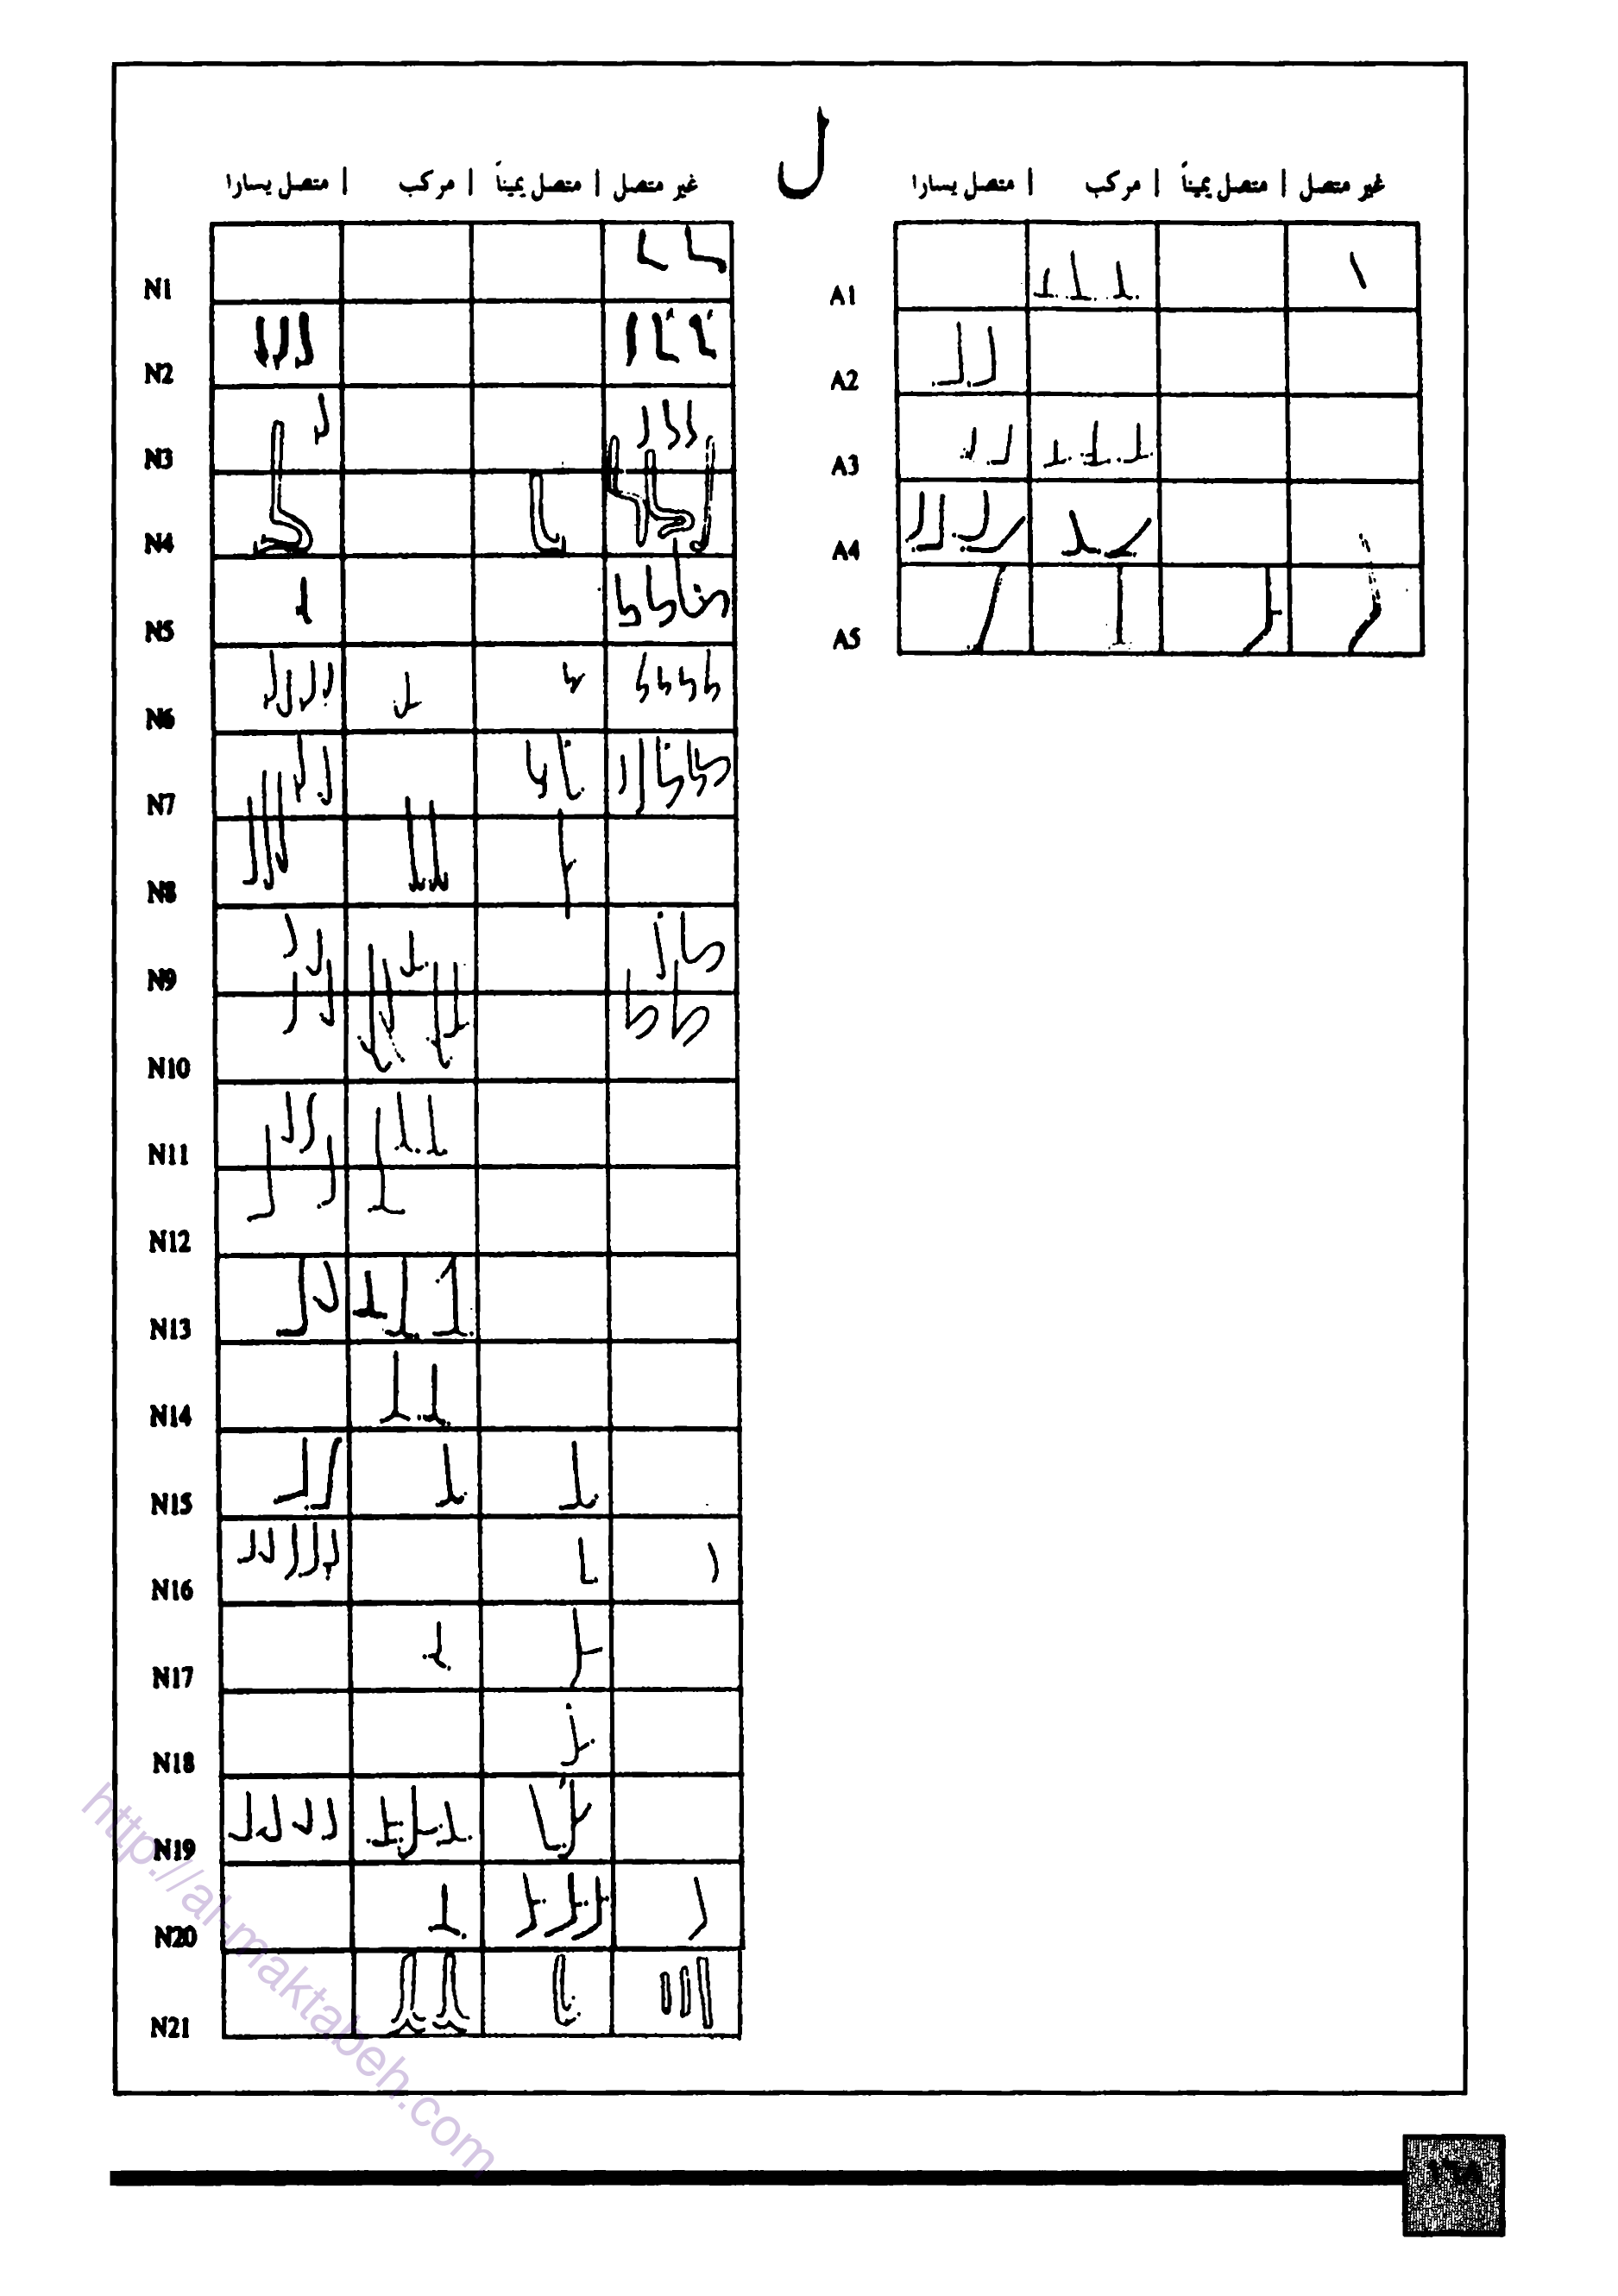 ل
غير متصل | متصل يميناً | مركب | متصل يسارا
غير متصل | متصل يميناً | مركب | متصل يسارا
A1
A2
A3
A4
A5
N1
N2
N3
N4
N5
N6
N7
N8
N9
N10
N11
N12
N13
N14
N15
N16
N17
N18
N19
N20
N21
http://al-maktabeh.com
١٦٨